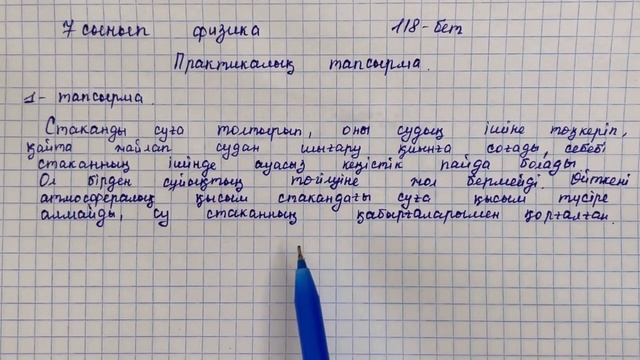 7 сынып физика 118-бет
Практикалық тапсырма.
1- тапсырма.
Стаканды суға толтырып, оны судың ішіне төңкеріп,
қайта судан шығару қиынға соғады, себебі
стаканның ішінде ауасыз кеңістік пайда болады
Ол бірден сұйықтың төгілуіне жол бермейді. Өйткені
атмосфералық қысым стакандағы суға қысым түсіре
алмайды, су стаканның қабырғаларымен қорғалған.